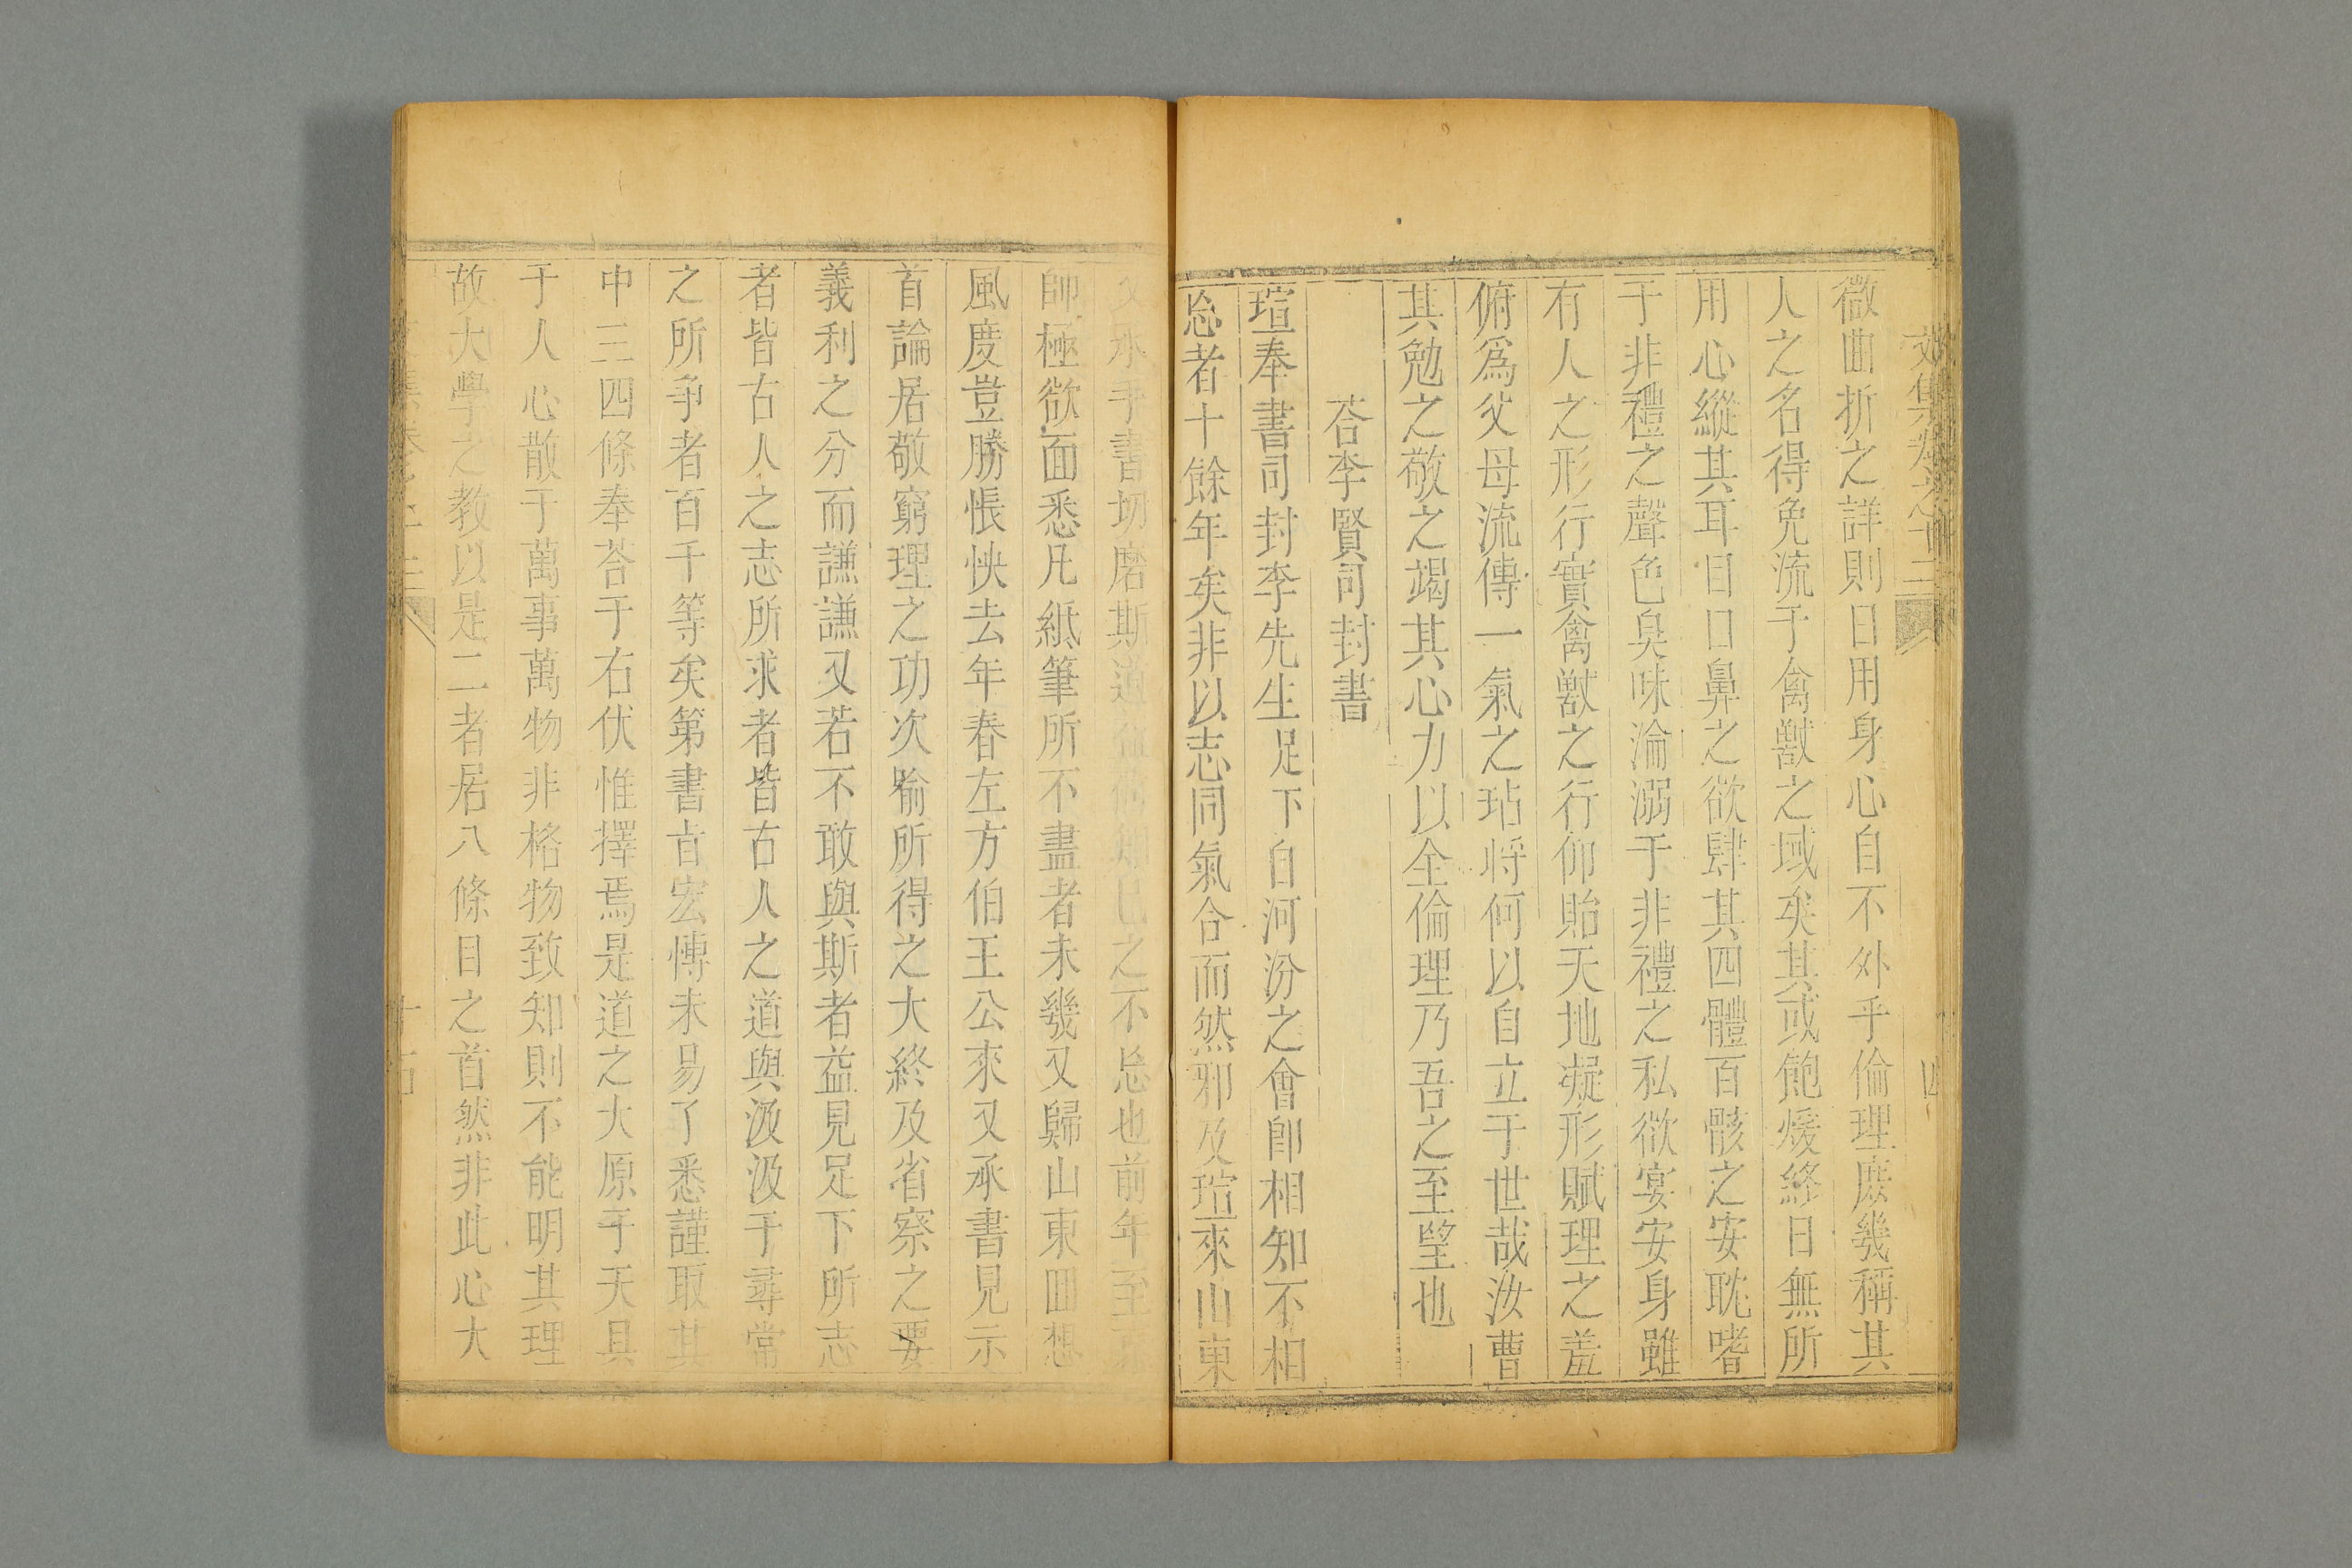 文集卷之十二
四
微曲折之詳則日用身心自不外乎倫理庶幾稱其
人之名得免流于禽獸之域矣其或飽煖終日無所
用心縱其耳目口鼻之欲肆其四體百骸之安耽嗜
于非禮之聲色臭味淪溺于非禮之私欲宴安身雖
有人之形行實禽獸之行仰貽天地凝形賦理之羞
俯爲父母流傳一氣之玷將何以自立于世哉汝曹
其勉之敬之竭其心力以全倫理乃吾之至望也
荅李賢司封書
瑄奉書司封李先生足下自河汾之會卽相知不相
忘者十餘年矣非以志同氣合而然邪及瑄來山東
又承手書切磨斯道知已之不忘也前年至
師極欲面悉凡紙筆所不盡者未幾又歸山東囬想
風度豈勝悵怏去年春左方伯王公來又承書見示
首論居敬窮理之功次喻所得之大終及省察之要
義利之分而謙謙又若不敢與斯者益見足下所志
者皆古人之志所求者皆古人之道與汲汲于尋常
之所爭者百千等矣第書言宏慱未易了悉謹取其
中三四條奉荅于右伏惟擇焉是道之大原于天具
于人心散于萬事萬物非格物致知則不能明其理
故大學之教以是二者居八條目之首然非此心大